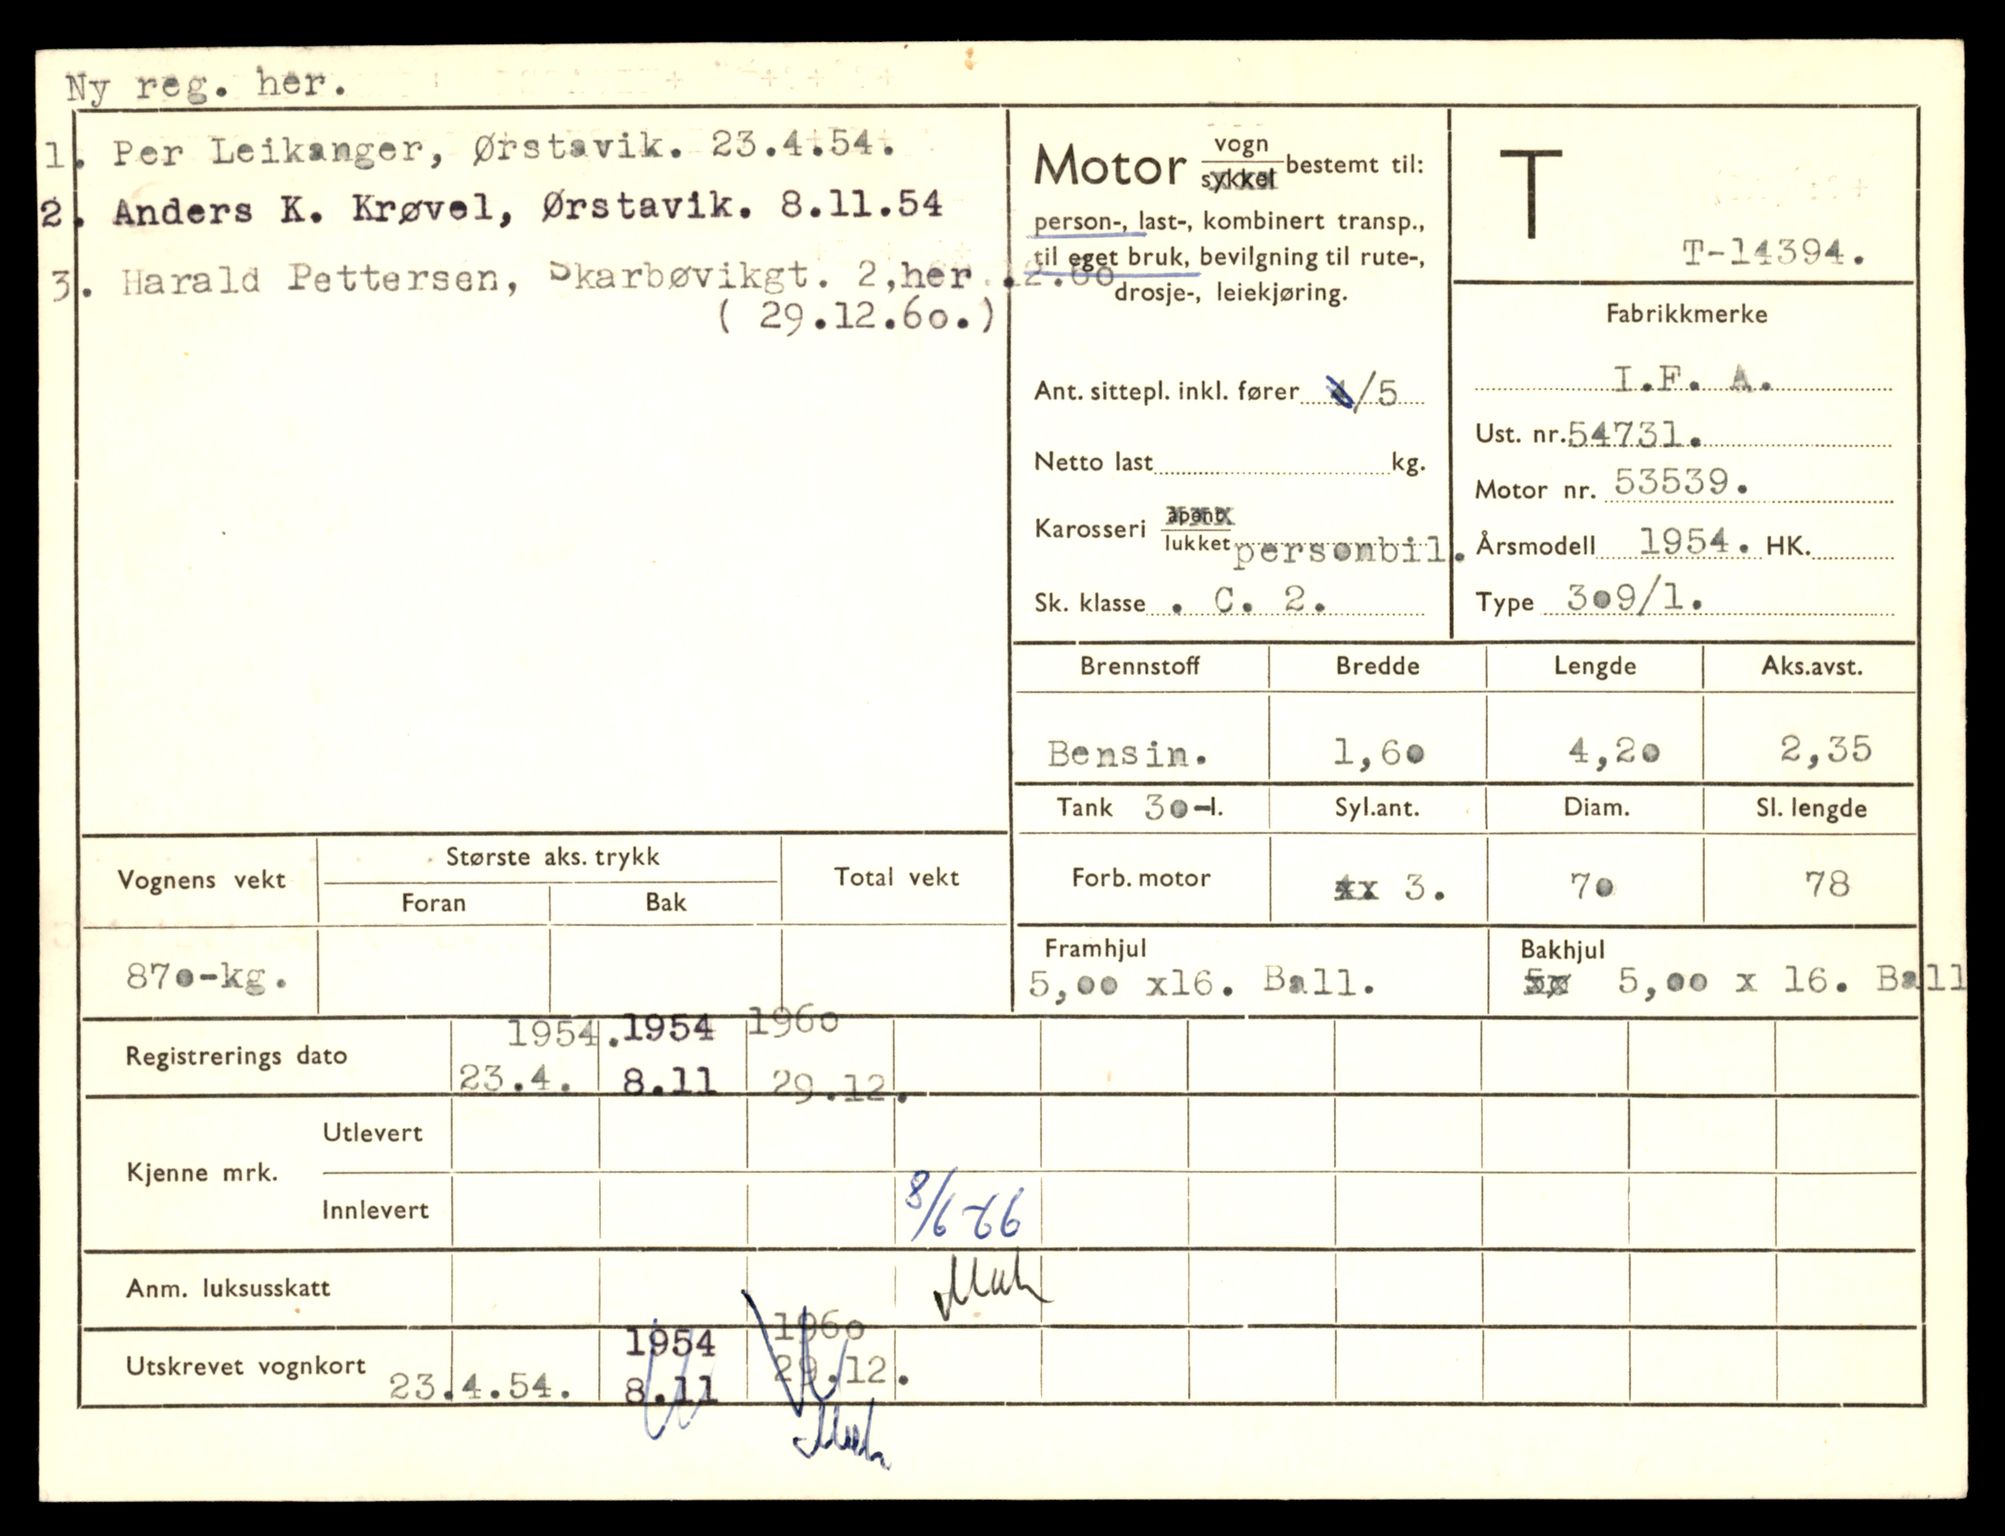 Ny reg. her.
1. Per Leikanger, Ørstavik. 23.4.54.
2. Anders K. Krøvel, Ørstavik. 8.11.54
3. Harald Pettersen, Skarbøvikgt. 2,her .12.60
( 29.12.60.)
Motor vogn sykkel bestemt til:
person-, last-, kombinert transp.,
til eget bruk, bevilgning til rute-,
drosje-, leiekjøring.
Ant. sittepl. inkl. fører 4/5
Netto last kg.
Karosseri åpent lukket personbil.
Sk. klasse . C. 2.
T
T-14394.
Fabrikkmerke
I.F. A.
Ust. nr. 54731.
Motor nr. 53539.
Årsmodell 1954. HK.
Type 309/1.
Brennstoff Bredde Lengde Aks.avst.
Bensin. 1,60 4,20 2,35
Tank 30-l. Syl.ant. Diam. Sl. lengde
Forb. motor 4x 3. 70 78
Framhjul Bakhjul
5,00 x16. Ball. 5x 5,00 x 16. Ball
Vognens vekt Største aks. trykk Total vekt
Foran Bak
870-kg.
Registrerings dato 1954. 1954 1960
23.4. 8.11 29.12.
Kjenne mrk. Utlevert
Innlevert 8/6-66
Anm. luksusskatt
Utskrevet vognkort 1954 1960
23.4.54. 8.11 29.12.